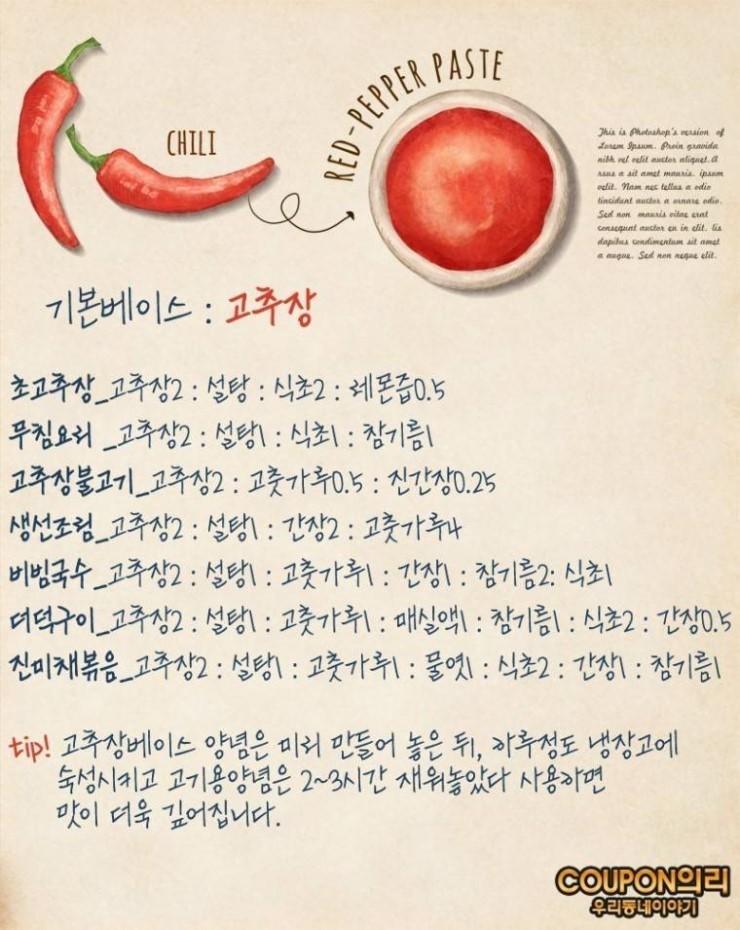 CHILI
RED-PEPPER PASTE
This is Photoshop's version of
Lorem Ipsum. Proin gravida
nibh vel velit auctor aliquet. A
sit amet mauris. ipsum
velit. Nam nec tellus a odio
tincidunt auctor a ornare odio.
Sed non mauris vitae erat
consequat auctor eu in elit.
dapibus condimentum sit amet
a augue. Sed non neque elit.
기본베이스 : 고추장
초고추장_고추장2 : 설탕 : 식초2 : 레몬즙0.5
무침요리_고추장2 : 설탕1 : 식초1 : 참기름1
고추장불고기_고추장2 : 고춧가루0.5 : 진간장0.25
생선조림_고추장2 : 설탕1 : 간장2 : 고춧가루4
비빔국수_고추장2 : 설탕1 : 고춧가루1 : 간장1 : 참기름2: 식초1
더덕구이_고추장2 : 설탕1 : 고춧가루1 : 매실액1 : 참기름1 : 식초2 : 간장0.5
진미채볶음_고추장2 : 설탕1 : 고춧가루1 : 물엿1 : 식초2 : 간장1 : 참기름1
tip! 고추장베이스 양념은 미리 만들어 놓은 뒤, 하루정도 냉장고에
숙성시키고 고기용양념은 2~3시간 재워놓았다 사용하면
맛이 더욱 깊어집니다.
COUPON의리
우리동네이야기